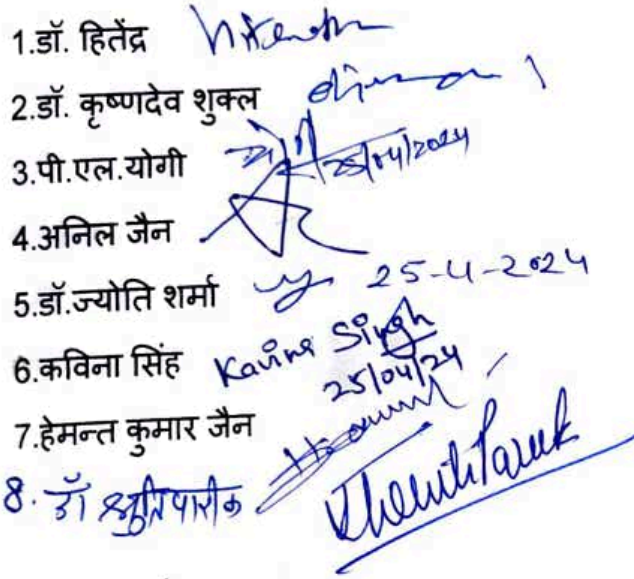 1.डॉ. हितेंद्र Hitendra
2.डॉ. कृष्णदेव शुक्ल
3.पी.एल.योगी 25/04/2024
4.अनिल जैन
5.डॉ.ज्योति शर्मा 25-4-2024
6.कविना सिंह Kavina Singh
25/04/24
7.हेमन्त कुमार जैन
8. डॉ श्रुति पारीक Shruti Pareek